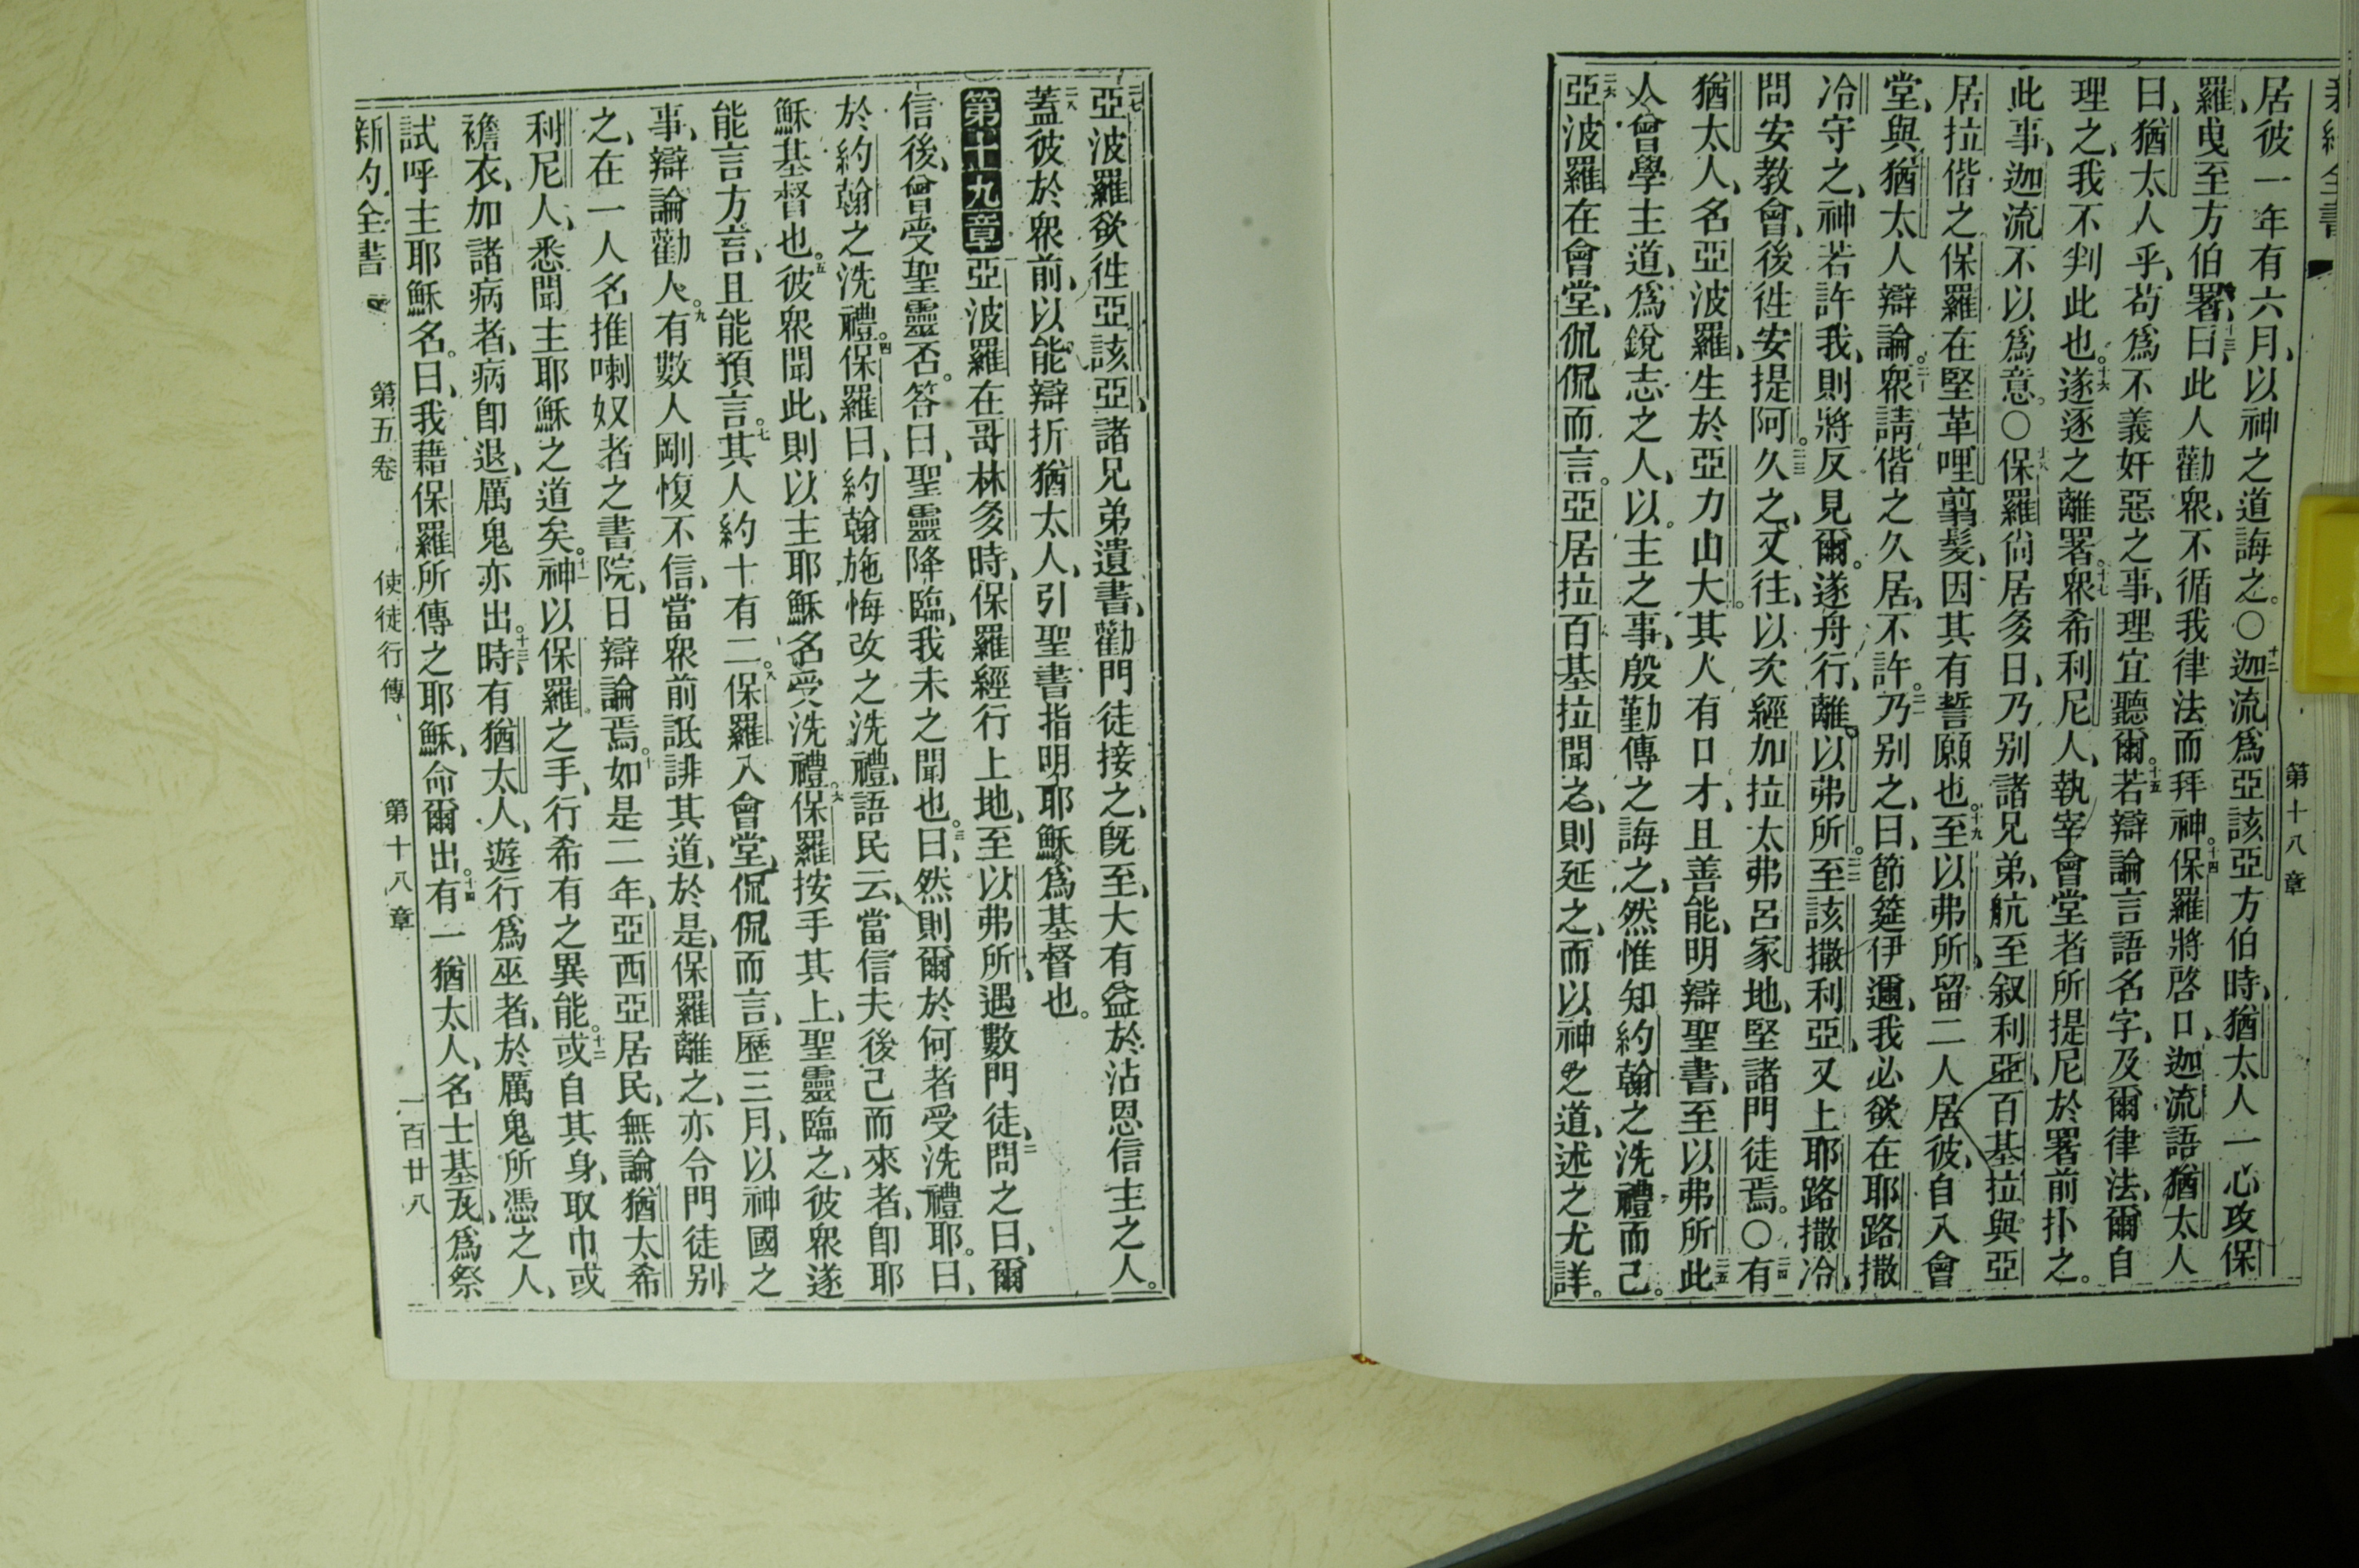 第十八章
居彼一年有六月、以神之道誨之。〇十二迦流爲亞該亞方伯時、猶太人一心攻保
羅、曳至方伯署、十三曰、此人勸衆、不循我律法而拜神。十四保羅將啓口、迦流語猶太人
曰、猶太人乎、苟爲不義奸惡之事、理宜聽爾。十五若辯論言語名字、及爾律法、爾自
理之、我不判此也。十六遂逐之離署。十七衆希利尼人、執宰會堂者所提尼於署前扑之。
此事、迦流不以爲意。〇十八保羅尙居多日、乃别諸兄弟、航至叙利亞、百基拉與亞
居拉偕之、保羅在堅革哩翦髮、因其有誓願也。十九至以弗所、留二人居彼、自入會
堂、與猶太人辯論。二十衆請偕之久居、不許。二一乃别之、曰、節筵伊邇、我必欲在耶路撒
冷守之、神若許我、則將反見爾。遂舟行、離以弗所。二二至該撒利亞、又上耶路撒冷、
問安教會、後徃安提阿。二三久之、又往、以次經加拉太弗呂家地、堅諸門徒焉。〇二四有
猶太人、名亞波羅、生於亞力山大。其人有口才、且善能明辯聖書、至以弗所。二五此
人曾學主道、爲銳志之人、以主之事、殷勤傳之誨之、然惟知約翰之洗禮而己。
二六亞波羅在會堂、侃侃而言。亞居拉百基拉聞之、則延之、而以神之道、述之尤詳。
二七亞波羅欲徃亞該亞、諸兄弟遺書、勸門徒接之、旣至、大有益於沾恩信主之人。
二八蓋彼於衆前、以能辯折猶太人、引聖書指明耶穌爲基督也。
第十九章一亞波羅在哥林多時、保羅經行上地、至以弗所、遇數門徒、二問之曰、爾
信後、曾受聖靈否。答曰、聖靈降臨、我未之聞也。三曰、然則爾於何者受洗禮耶。曰、
於約翰之洗禮。四保羅曰、約翰施悔改之洗禮、語民云、當信夫後己而來者、卽耶
穌基督也。五彼衆聞此、則以主耶穌名受洗禮。六保羅按手其上、聖靈臨之、彼衆遂
能言方言、且能預言。七其人約十有二。八保羅入會堂、侃侃而言、歷三月、以神國之
事、辯論勸人。九有數人剛愎不信、當衆前詆誹其道、於是、保羅離之、亦令門徒别
之、在一人名推喇奴者之書院、日辯論焉。十如是二年、亞西亞居民、無論猶太希
利尼人、悉聞主耶穌之道矣。十一神以保羅之手、行希有之異能。十二或自其身、取巾或
襜衣、加諸病者、病卽退、厲鬼亦出。十三時、有猶太人、遊行爲巫者、於厲鬼所憑之人、
試呼主耶穌名。曰、我藉保羅所傳之耶穌、命爾出。十四有一猶太人、名士基瓦、爲祭
新約全書 第五卷 使徒行傳 第十八章 一百廿八